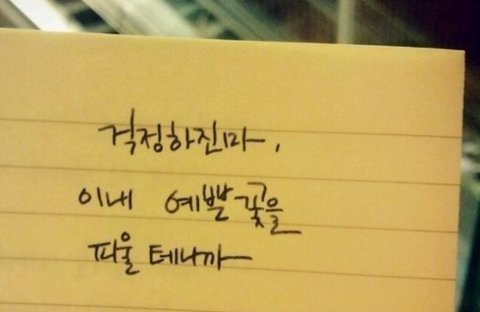 걱정하진마,
이내 예쁜꽃을
피울테니까